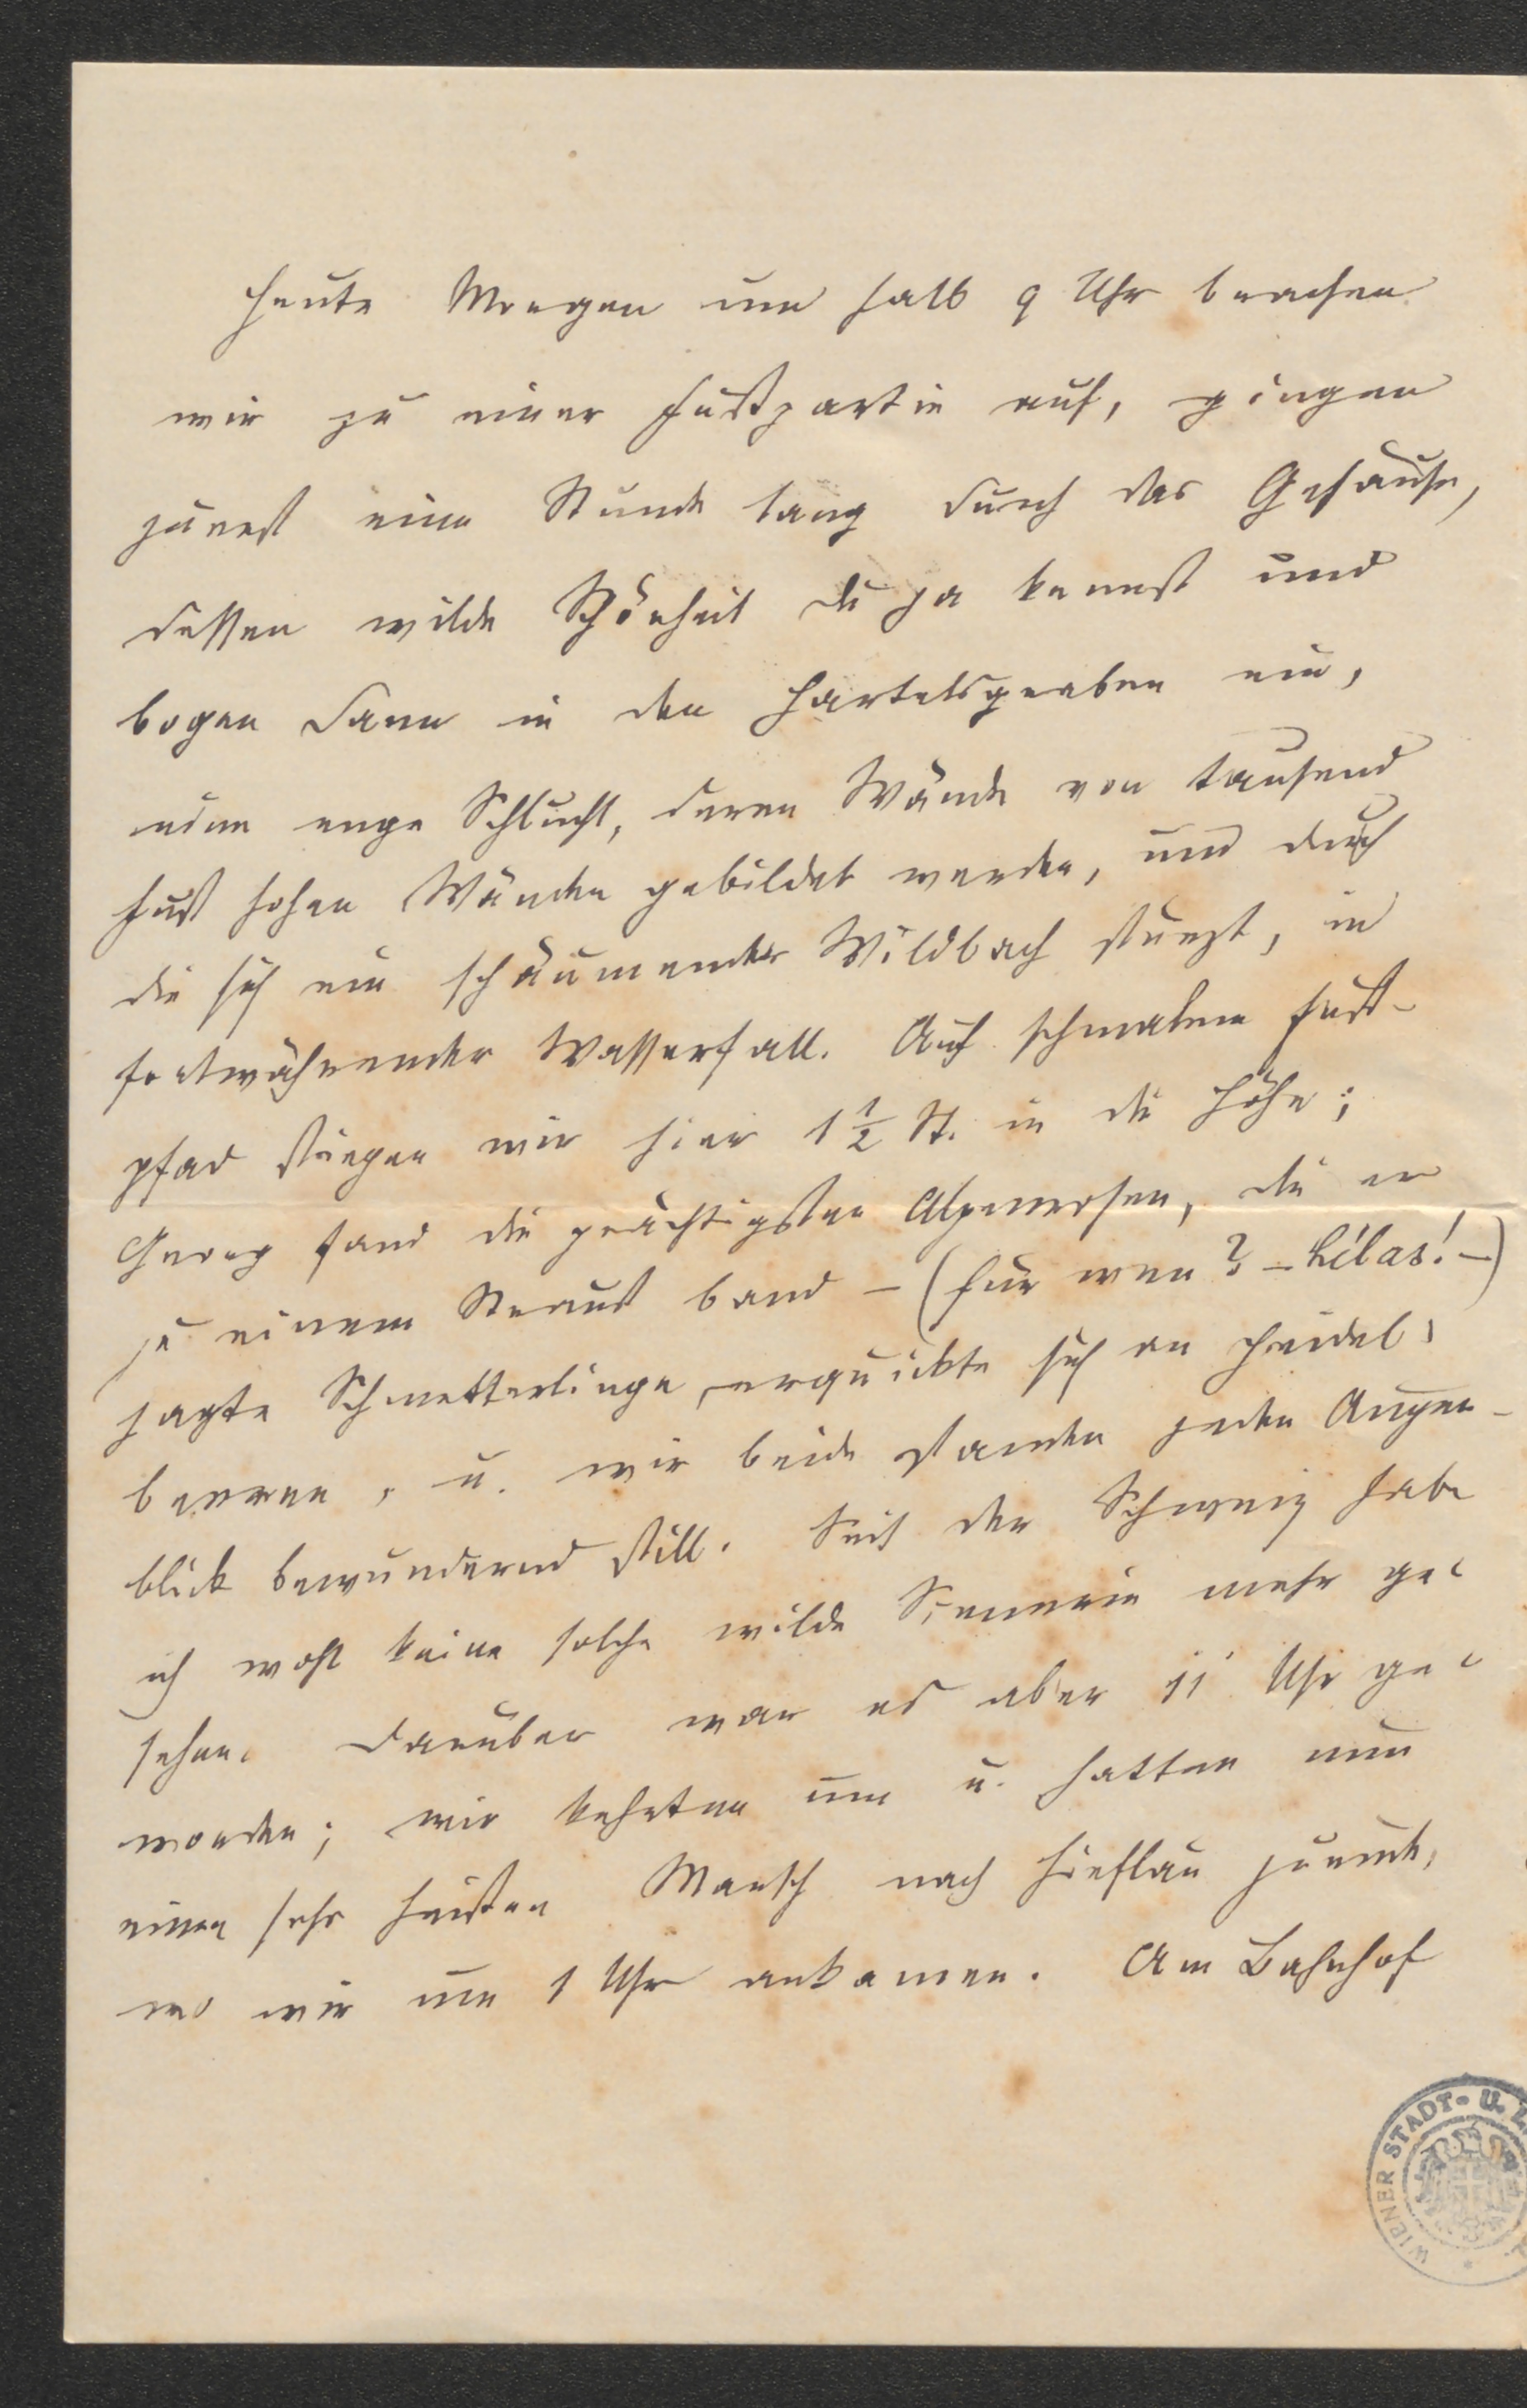 Heute Morgen um halb 9 Uhr brachen
wir zu einer Fußpartie auf, gingen
zuerst eine Stunde lang durch das Gesäuse,
dessen wilde Schönheit du ja kennst und
bogen dann in den Hartelsgraben ein,
eine enge Schlucht, deren Wände von tausend
Fuß hohen Wänden gebildet werden, und durch
die sich ein schäumender Wildbach stürzt, ein
fortwährender Wasserfall. Auf schmalem Fuß-
pfad stiegen wir hier 1 1/2 St. in die Höhe;
Georg fand die prächtigsten Alpenrosen, die er
zu einem Strauß band – (für wen? – hélas! –)
jagte Schmetterlinge, erquickte sich an Heidel-
beeren, u. wir beide standen jeden Augen-
blick bewundernd still. Seit der Schweiz habe
ich wohl keine solche wilde Scenerie mehr ge-
sehen. Darüber war es aber 11 Uhr ge-
worden; wir kehrten um u. hatten nun
einen sehr heißen Marsch nach Hieflau zurück,
wo wir um 1 Uhr ankamen. Am Bahnhof
WIENER STADT- U.